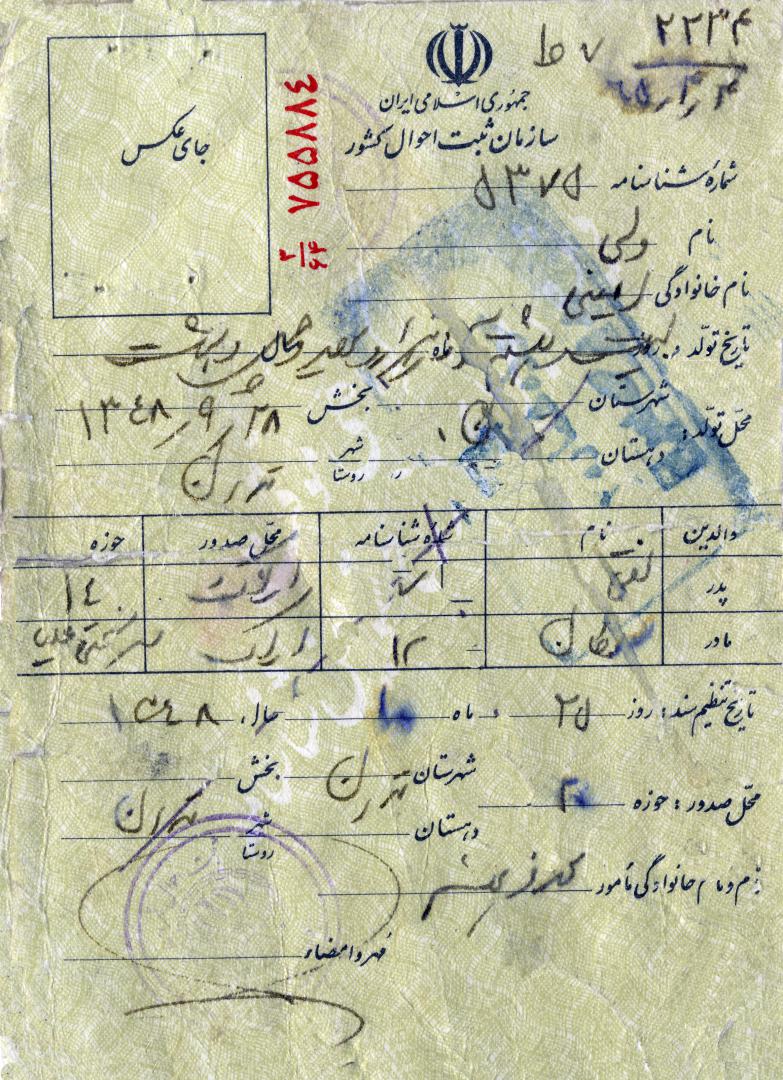 ۲۲۳۴
ط ۷
۶۵/۳/۴
جمهوری اسلامی ایران
سازمان ثبت احوال کشور
جای عکس
۷۵۵۸۸۴
۳/۶۴
شمارهٔ شناسنامه ۵۳۷۵
نام ولی
نام خانوادگی
تاریخ تولّد: روز بیست هشتم ماه آذر هزار و سیصد و چهل و هشت
محلّ تولّد: شهرستان تهران بخش ۱۳۴۸/۹/۲۸
دهستان شهر روستا تهران
والدین نام شمارهٔ شناسنامه محلّ صدور حوزه
پدر اراک ۱۴
مادر ۱۲ اراک
تاریخ تنظیم سند: روز ۲۵ ماه ۱۰ سال ۱۳۴۸
محلّ صدور: حوزه ۲۰ شهرستان تهران بخش
دهستان شهر روستا تهران
نام و نام خانوادگی مأمور
مهر و امضاء